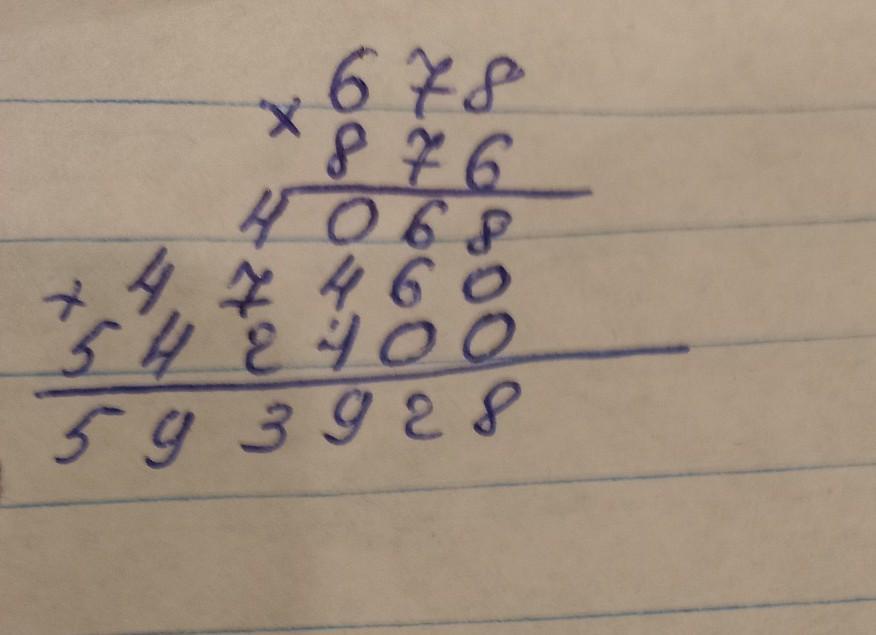 678
× 876
4068
+ 47460
542400
593928